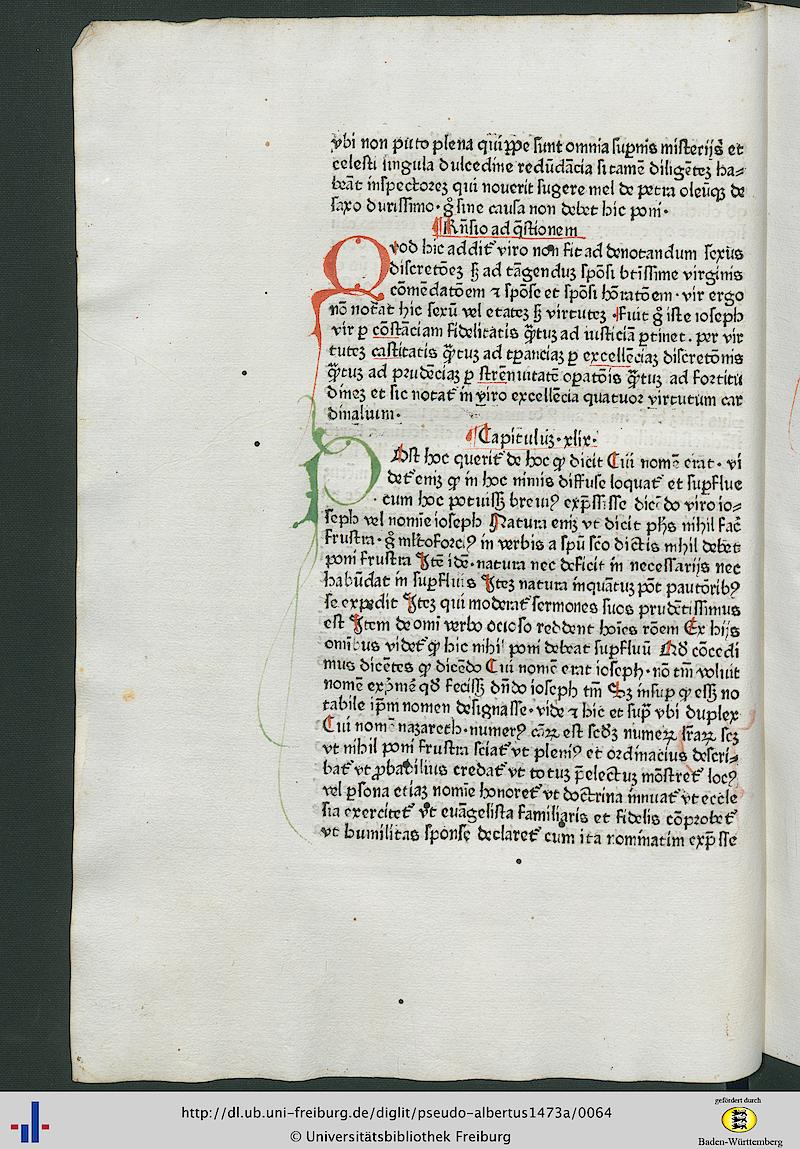 vbi non puto plena quiꝓpe sunt omnia suꝑnis misterijs et
celesti singula dulcedine redūdācia si tamē diligētez ha-
beāt inspectorez qui nouerit sugere mel de petra oleūqꝫ de
saxo durissimo · g̊ sine causa non debet hic poni ·
Rn̄sio ad q̄stionem
Qvod hic addit᷑ viro non fit ad denotandum sexus
discretōez sꝫ ad tāgenduz spōsi btissime virginis
cōmēdatōem ⁊ spōse et spōsi hōratōem · vir ergo
nō notat᷑ hic sexū vel etatez sꝫ virtutez Fuit g̊ iste ioseph
vir ꝑ cōstāciam fidelitatis q̄tuz ad iusticiā ꝑtinet · per vir
tutez castitatis q̄tuz ad tꝑanciaz ꝑ excellēciaz discretōnis
q̄tuz ad prudēciaz ꝑ strēnuitatē oꝑatōis q̄tuz ad fortitu
dinez et sic notat᷑ in viro excellēcia quatuor virtutum car
dinalium ·
Capituluz · xlix ·
Post hoc querit᷑ de hoc ꝙ dicit Cui nomē erat · vi
det᷑ eniz ꝙ in hoc nimis diffuse loquat᷑ et suꝑflue
cum hoc potuissꝫ breuiꝰ exp̄ssisse dicēdo viro io-
seph vel nomīe ioseph Natura eniz vt dicit phs nihil facͥ
frustra · g̊ mltoforciꝰ in verbis a spū scō dictis nihil debet
poni frustra Itē idē · natura nec deficit in necessarijs nec
habūdat in suꝑfluis Itez natura inquātuz pōt pautōribꝰ
se expedit Itez qui moderat᷑ sermones suos prudētissimus
est Item de omī verbo ocioso reddent hoīes rōem Ex hijs
omībus videt᷑ ꝙ hic nihil poni debeat suꝑfluū Ad cōcedi
mus dicētes ꝙ dicēdo Cui nomē erat ioseph · nō tm̄ voluit
nomē exp̄mē qd̄ fecissꝫ dn̄do ioseph tm̄ Sꝫ insuꝑ ꝙ essꝫ no
tabile ip̄m nomen designasse · vide ⁊ hic et supͣ vbi duplex
Cui nomē nazareth · numerꝰ est scdꝫ sez
vt nihil poni frustra sciat᷑ vt pleniꝰ et ordinacius descri-
bat᷑ vt ꝓbabilius credat᷑ vt totuz p̄electuz mōstret᷑ locꝰ
vel ꝑsona etiaz nomīe honoret᷑ vt doctrina innuat᷑ vt eccle
sia exercitet᷑ vt euāgelista familiaris et fidelis cōprobet᷑
vt humilitas sponse declaret᷑ cum ita nominatim exp̄sse
http://dl.ub.uni-freiburg.de/diglit/pseudo-albertus1473a/0064
© Universitätsbibliothek Freiburg
gefördert durch
Baden-Württemberg